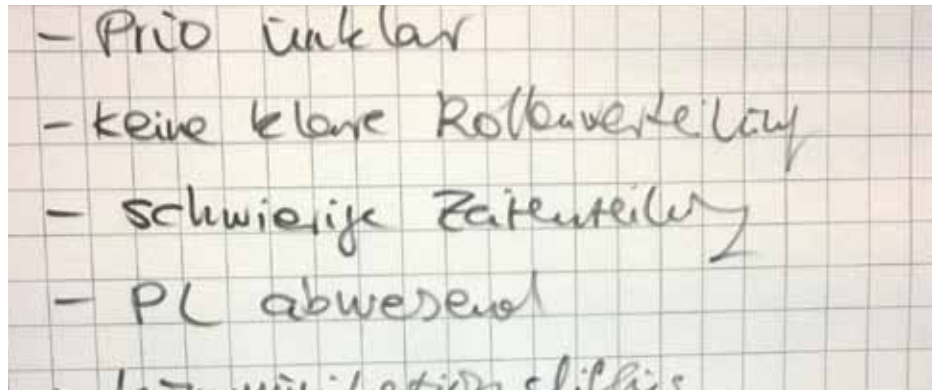 - Prio unklar
- keine klare Rollenverteilung
- schwierige Zeiteinteilung
- PL abwesend